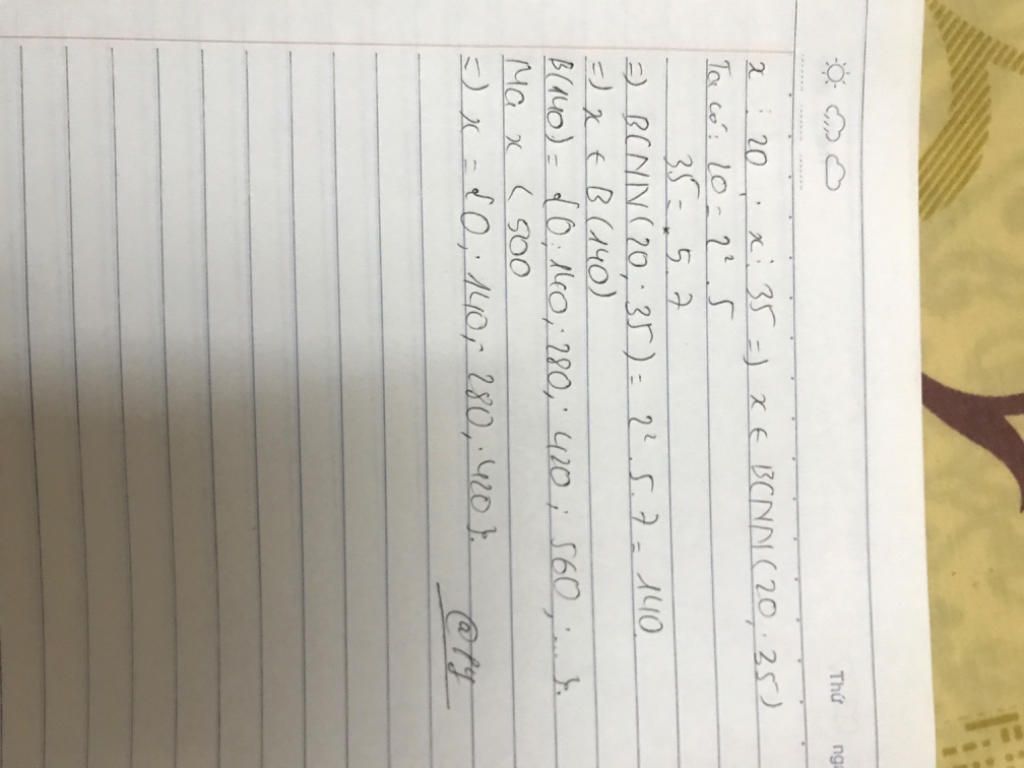 Thứ ng
x ⋮ 20 ; x ⋮ 35 => x ∈ BCNN(20 ; 35)
Ta có: 20 = 2² . 5
35 = 5 . 7
=> BCNN(20 ; 35) = 2² . 5 . 7 = 140
=> x ∈ B(140)
B(140) = {0 ; 140 ; 280 ; 420 ; 560 ; ...}.
Mà x < 500
=> x = {0 ; 140 ; 280 ; 420}.